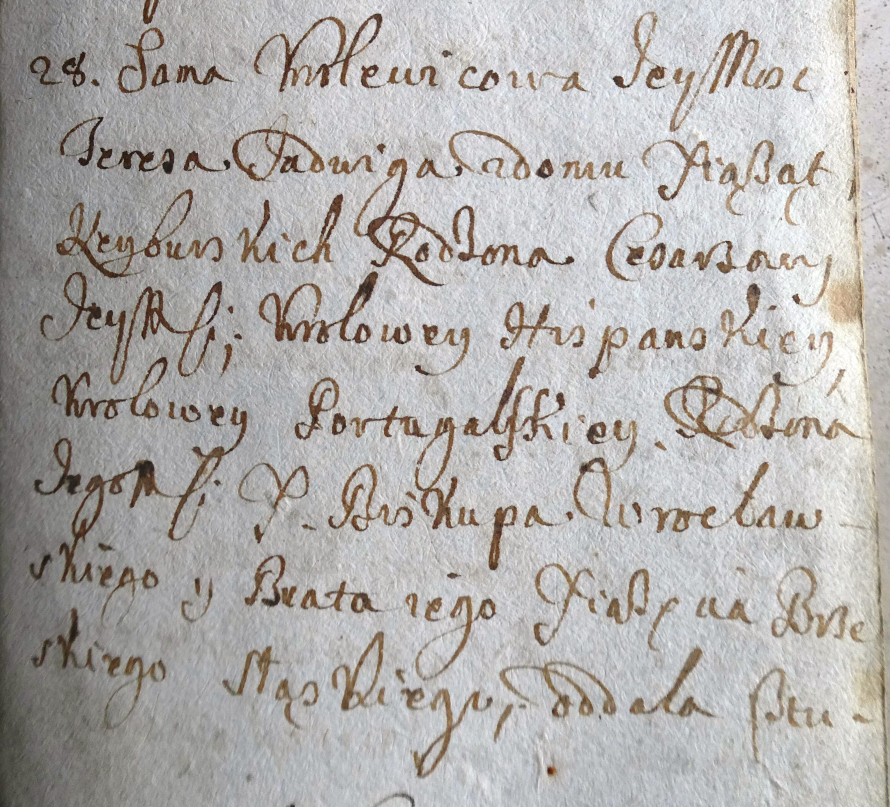 28. Sama Krolewicowa JeyMosc
Teresa Jadwiga z domu Xiążąt
Neyburskich Rodzona Cesarzowy
JeyMſci; Krolowey Hispanskiey,
Krolowey Portugalſkiey. Rodzona
JegoMſci X. Biskupa Wrocław-
skiego y Brata iego Xiążęcia Brze
skiego